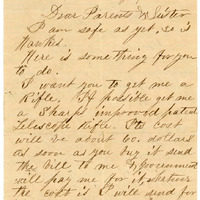 Dear Parents & Sister
I am safe as yet, so is
Hankes.
Here is some thing for you
to do.
I want you to get me a
Rifle, If possible get me
a Sharps improved patent
Telescope Rifle. Its cost
will be about 60. dollars
as soon as you buy it send
the bill to me & government
will pay me for it whatever
the cost is I will send for